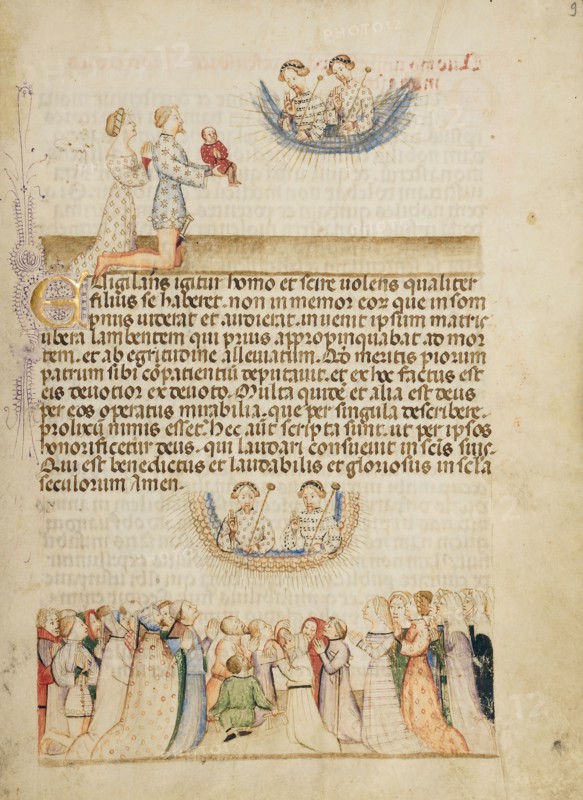 9
Euigilans igitur homo et scire uolens qualiter
filius se haberet. non inmemor eoꝝ que in som
pnius uiderat et audierat. inuenit ipsum matris
ubera lambentem qui prius appropinquabat ad mor
tem. et ab egritudine alleuiatum. Qđ meritis piorum
patrum sibi cōpatientiū deputauit. et ex hoc factus est
eis deuotior ex deuoto. Multa quidē et alia est deus
per eos operatus mirabilia. que per singula describere.
prolixū nimis esset. Hec aūt scripta sunt. ut per ipsos
honorificetur deus. qui laudari consueuit in scīs suis.
Qui est benedictus et laudabilis et gloriosus in scła
seculorum Amen.